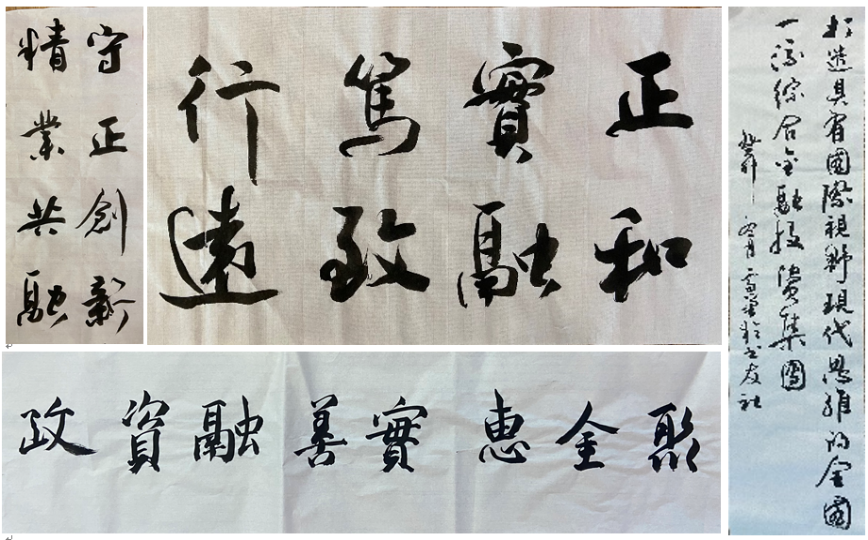 守正創新
精業共融
正實篤行
和融致遠
聚金惠實善融資政
打造具有國際視野現代思維的全國
一流綜合金融投資集團
癸卯 於書友社